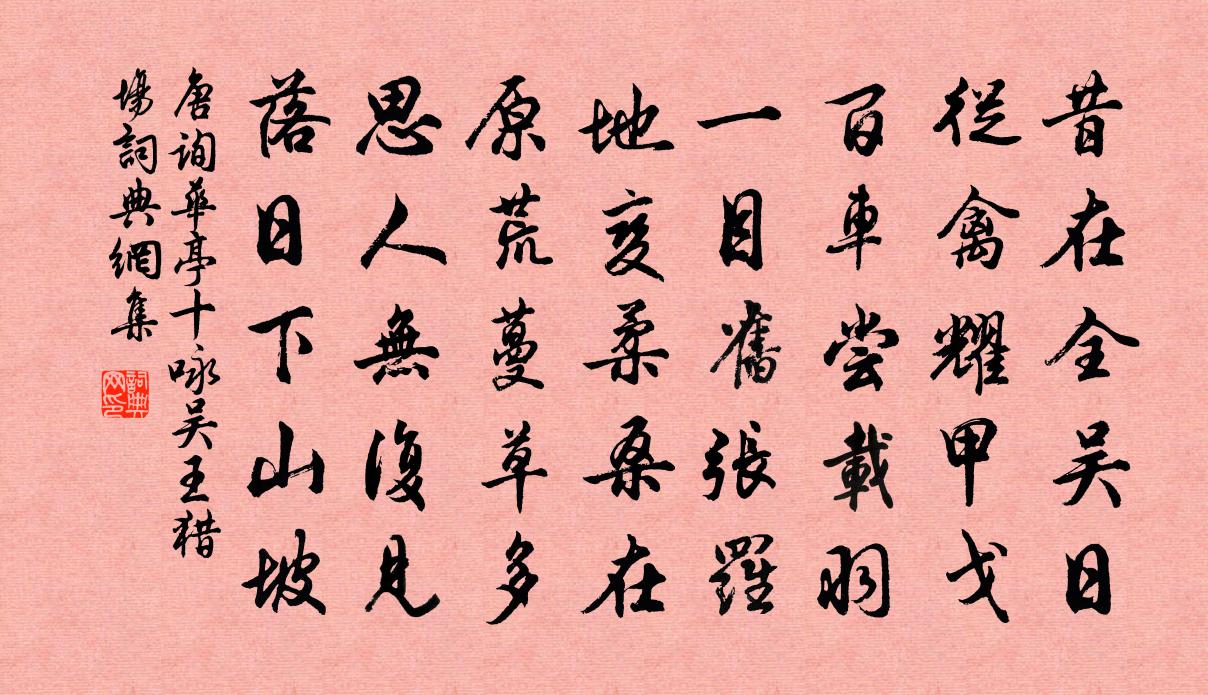 昔在全吴日
從禽耀甲戈
百車嘗載羽
一目舊張羅
地变柔桑在
原荒蔓草多
思人無復見
落日下山坡
唐詢華亭十咏吴王猎
場詞典網集
詞典
网印